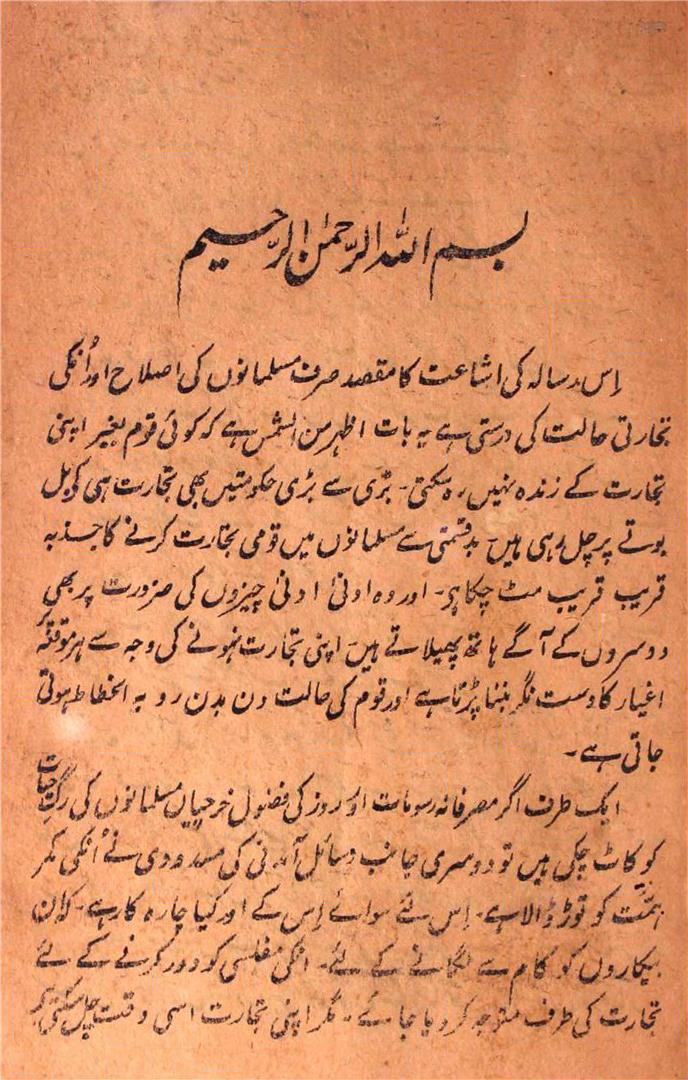 بسم اللہ الرحمٰن الرحیم
اِس رسالہ کی اشاعت کا مقصد صرف مسلمانوں کی اصلاح اور اُنکی
تجارتی حالت کی درستی ہے یہ بات اظہر من الشمس ہے کہ کوئی قوم بغیر اپنی
تجارت کے زندہ نہیں رہ سکتی۔ بڑی سے بڑی حکومتیں بھی تجارت ہی کو بل
بوتے پر چل رہی ہیں۔ بدقسمتی سے مسلمانوں میں قومی تجارت کرنے کا جذبہ
قریب قریب مٹ چکا ہو۔ اور وہ ادنیٰ ادنیٰ چیزوں کی ضرورت پر بھی
دوسروں کے آگے ہاتھ پھیلاتے ہیں۔ اپنی تجارت نہونے کی وجہ سے ہر موقعہ پر
اغیار کا دست نگر بننا پڑتا ہے اور قوم کی حالت دن بدن رو بہ انحطاط ہوتی
جاتی ہے۔
ایک طرف اگر مصرفانہ رسومات اور روز کی فضول خرچیاں مسلمانوں کی رگِ حیات
کو کاٹ چکی ہیں تو دوسری جانب وسائل آمدنی کی مسدودی نے اُنکی کمر
ہمّت کو توڑ ڈالا ہے۔ اِس لئے سوائے اِس کے اور کیا چارہ کار ہے۔ کہ ان
بیکاروں کو کام سے لگانے کے لئے۔ انکی مفلسی کو دور کرنے کے لئے
تجارت کی طرف متوجہ کر دیا جائے۔ مگر اپنی تجارت اسی وقت چل سکتی ہے